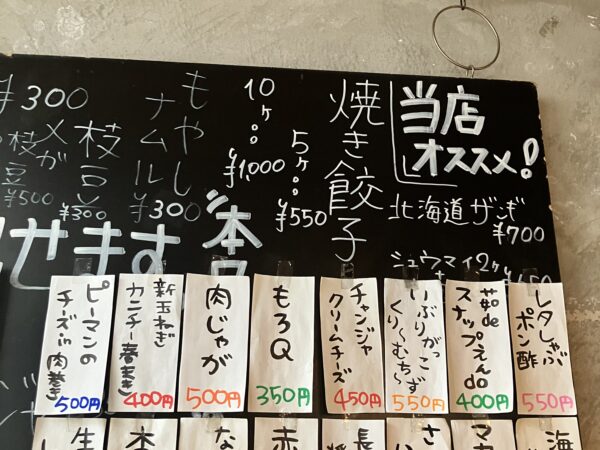 当店
オススメ!
北海道ザンギ
¥700
シュウマイ2ヶ
焼き餃子
5ヶ
¥550
10ヶ
¥1,000
もやし
ナムル
¥300
枝豆
¥300
¥500
¥300
せます
レタしゃぶ
ポン酢
550円
茹de
スナップえんdo
400円
いぶりがっこ
くりぃむちぃず
550円
チャンジャ
クリームチーズ
450円
もろQ
350円
肉じゃが
500円
新玉ねぎ
カニチー春まき
400円
ピーマンの
チーズin肉巻き
500円
海
マカ
さ
長
赤
な
本
生